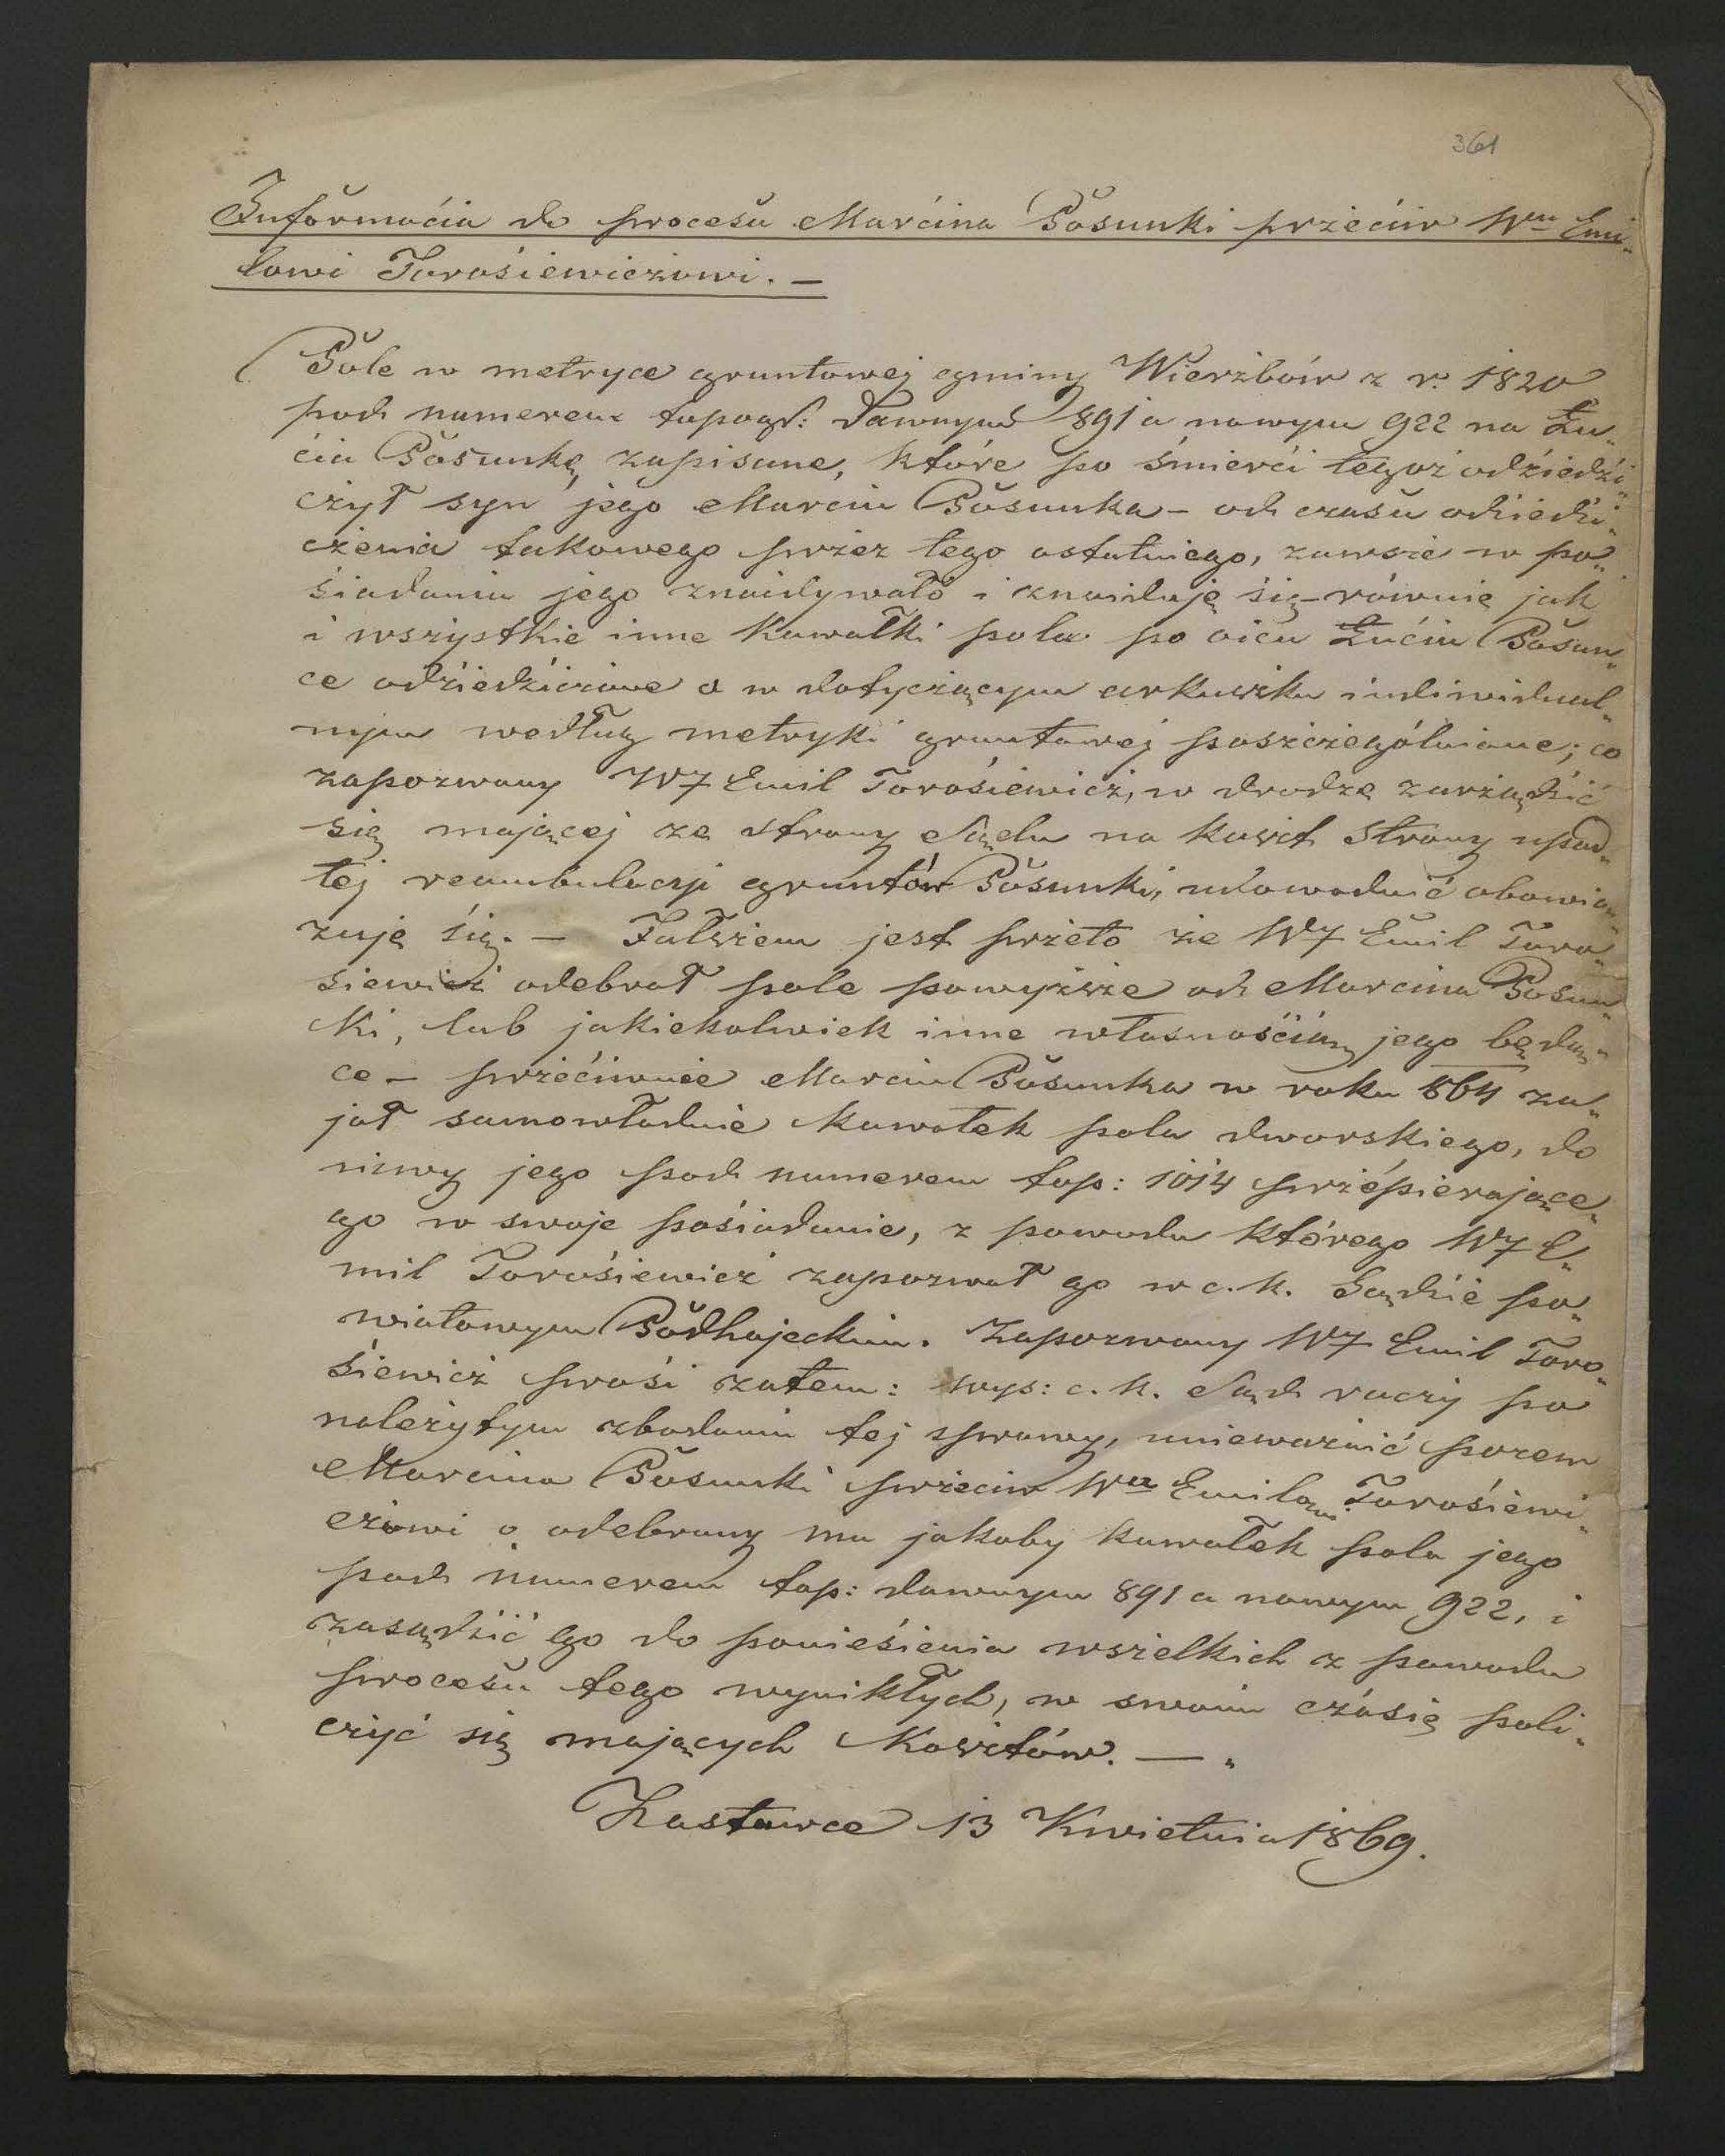 361
Informaćia do procesu Marćina Posunki przećiw Wmu Emi„
lowi Torośiewiczowi. —
Pole w metryce gruntowej gminy Wierzbów z r. 1820
pod numerem topogr: dawnym 891 a nowym 922 na Łu„
ćia Posunkę zapisane, które po śmierći tegoż odźiedźi„
czył syn jego Marcin Posunka – od czasu odźiedźi„
czenia takowego przez tego ostatniego, zawsze w po„
śiadaniu jego znaidywało i znaiduję śię – równie jak
i wszystkie inne kawałki pola po oicu Łućiu Posun„
ce odźiedźiczone a w dotyczącym arkuszku indiwidual„
nym według metryki gruntowej poszczególnione; co
zapozwany WJ Emil Torośiewicz, w drodze zarządźić
śię mającej ze strony Sądu na koszt strony upad„
łej reambulacyi gruntów Posunki, udowodnić obowią„
zuję śię. — Fałszem jest przeto że WJ Emil Toro„
siewicz odebrał pole powyższe od Marcina Posun„
ki, lub jakiekolwiek inne własnośćią jego będą„
ce – przećiwnie Marcin Posunka w roku 864 za„
jął samowładnie kawałek pola dworskiego, do
niwy jego pod numerem top: 1014 przépierające„
go w swoje pośiadanie, z powodu którego WJ E„
mil Torośiewicz zapozwał go w c. k. Sądźie po„
wiatowym Podhajeckim. Zapozwany WJ Emil Toro„
śiewicz prośi zatem: wys: c. k. Sąd raczy po
należytym zbadaniu tej sprawy, unieważnić pozew
Marcina Posunki przeciw Wmu Emilowi Torośiewi„
czowi o odebrany mu jakoby kawałek pola jego
pod numerem top: dawnym 891 a nowym 922, i
zasądźić go do ponieśienia wszelkich z powodu
procesu tego wynikłych, w swoim czásię poli„
czyć się mających kosztów. — „
Zastawce 13 Kwietnia 1869.